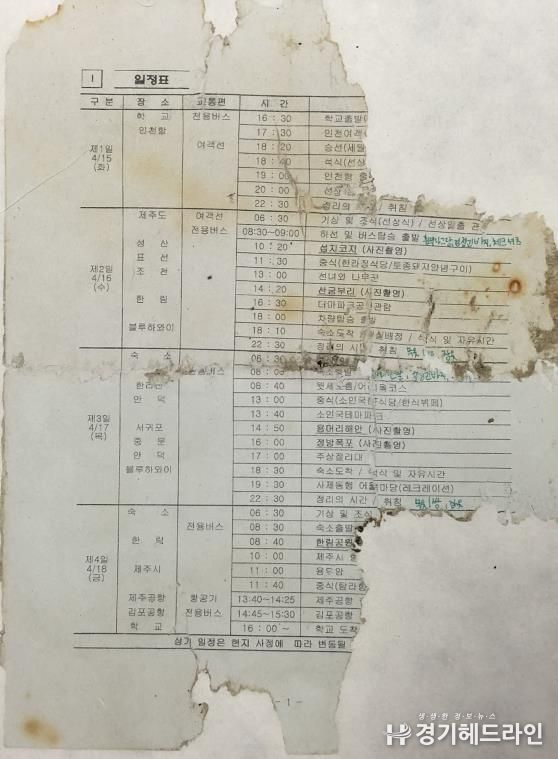 I 일정표
구 분 장 소 교통편 시 간
제1일 4/15 (화)
학 교 전용버스 16 : 30 학교출발(
인천항 17 : 30 인천여객
여객선 18 : 20 승선(세월
18 : 40 석식(선상
19 : 00 인천항 출
20 : 00 선상
22 : 30 정리의 / 취침
제2일 4/16 (수)
제주도 여객선 06 : 30 기상 및 조식(선상식) / 선상일출 관
전용버스 08:30~09:00 하선 및 버스탑승 출발
성 산 10 : 20 섭지코지 (사진촬영)
표 선 11 : 30 중식(한라정식당/토종돼지양념구이)
조 천 13 : 00 선녀와 나무꾼
14 : 20 산굼부리 (사진촬영)
한 림 16 : 30 더마파크공연관람
18 : 00 차량탑승 출발
블루하와이 18 : 10 숙소도착 / 실배정 / 석식 및 자유시간
22 : 30 정리의 시 / 취침
제3일 4/17 (목)
숙 소 06 : 30
08 : 00 숙소출발
한라산 08 : 40 윗세오름/어리목코스
안 덕 13 : 00 중식(소인국 식당/한식뷔페)
13 : 40 소인국테마파크
서귀포 14 : 50 용머리해안 (사진촬영)
중 문 16 : 00 정방폭포 (사진촬영)
안 덕 17 : 00 주상절리대
블루하와이 18 : 30 숙소도착 / 석식 및 자유시간
19 : 30 사제동행 어울 마당(레크레이션)
22 : 30 정리의 시간 / 취침
제4일 4/18 (금)
숙 소 06 : 30 기상 및 조식
전용버스 08 : 30 숙소출발
한 림 08 : 40 한림공원
10 : 00 제주시
제주시 11 : 00 용두암
11 : 40 중식(탐라
제주공항 항공기 13:40~14:25 제주공항
김포공항 전용버스 14:45~15:30 김포공항
학 교 16 : 00 ~ 학교 도착
상기 일정은 현지 사정에 따라 변동될
- 1 -
생·생·한 정·보·뉴·스
경기헤드라인